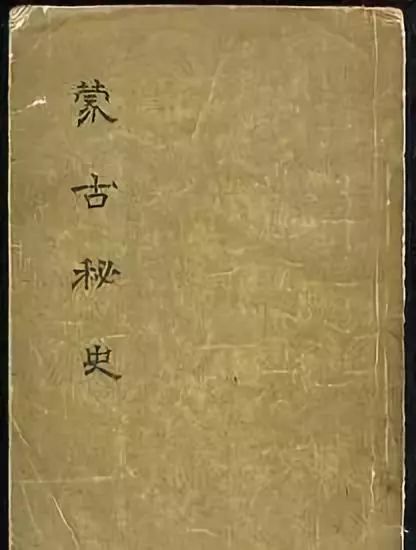 蒙古秘史